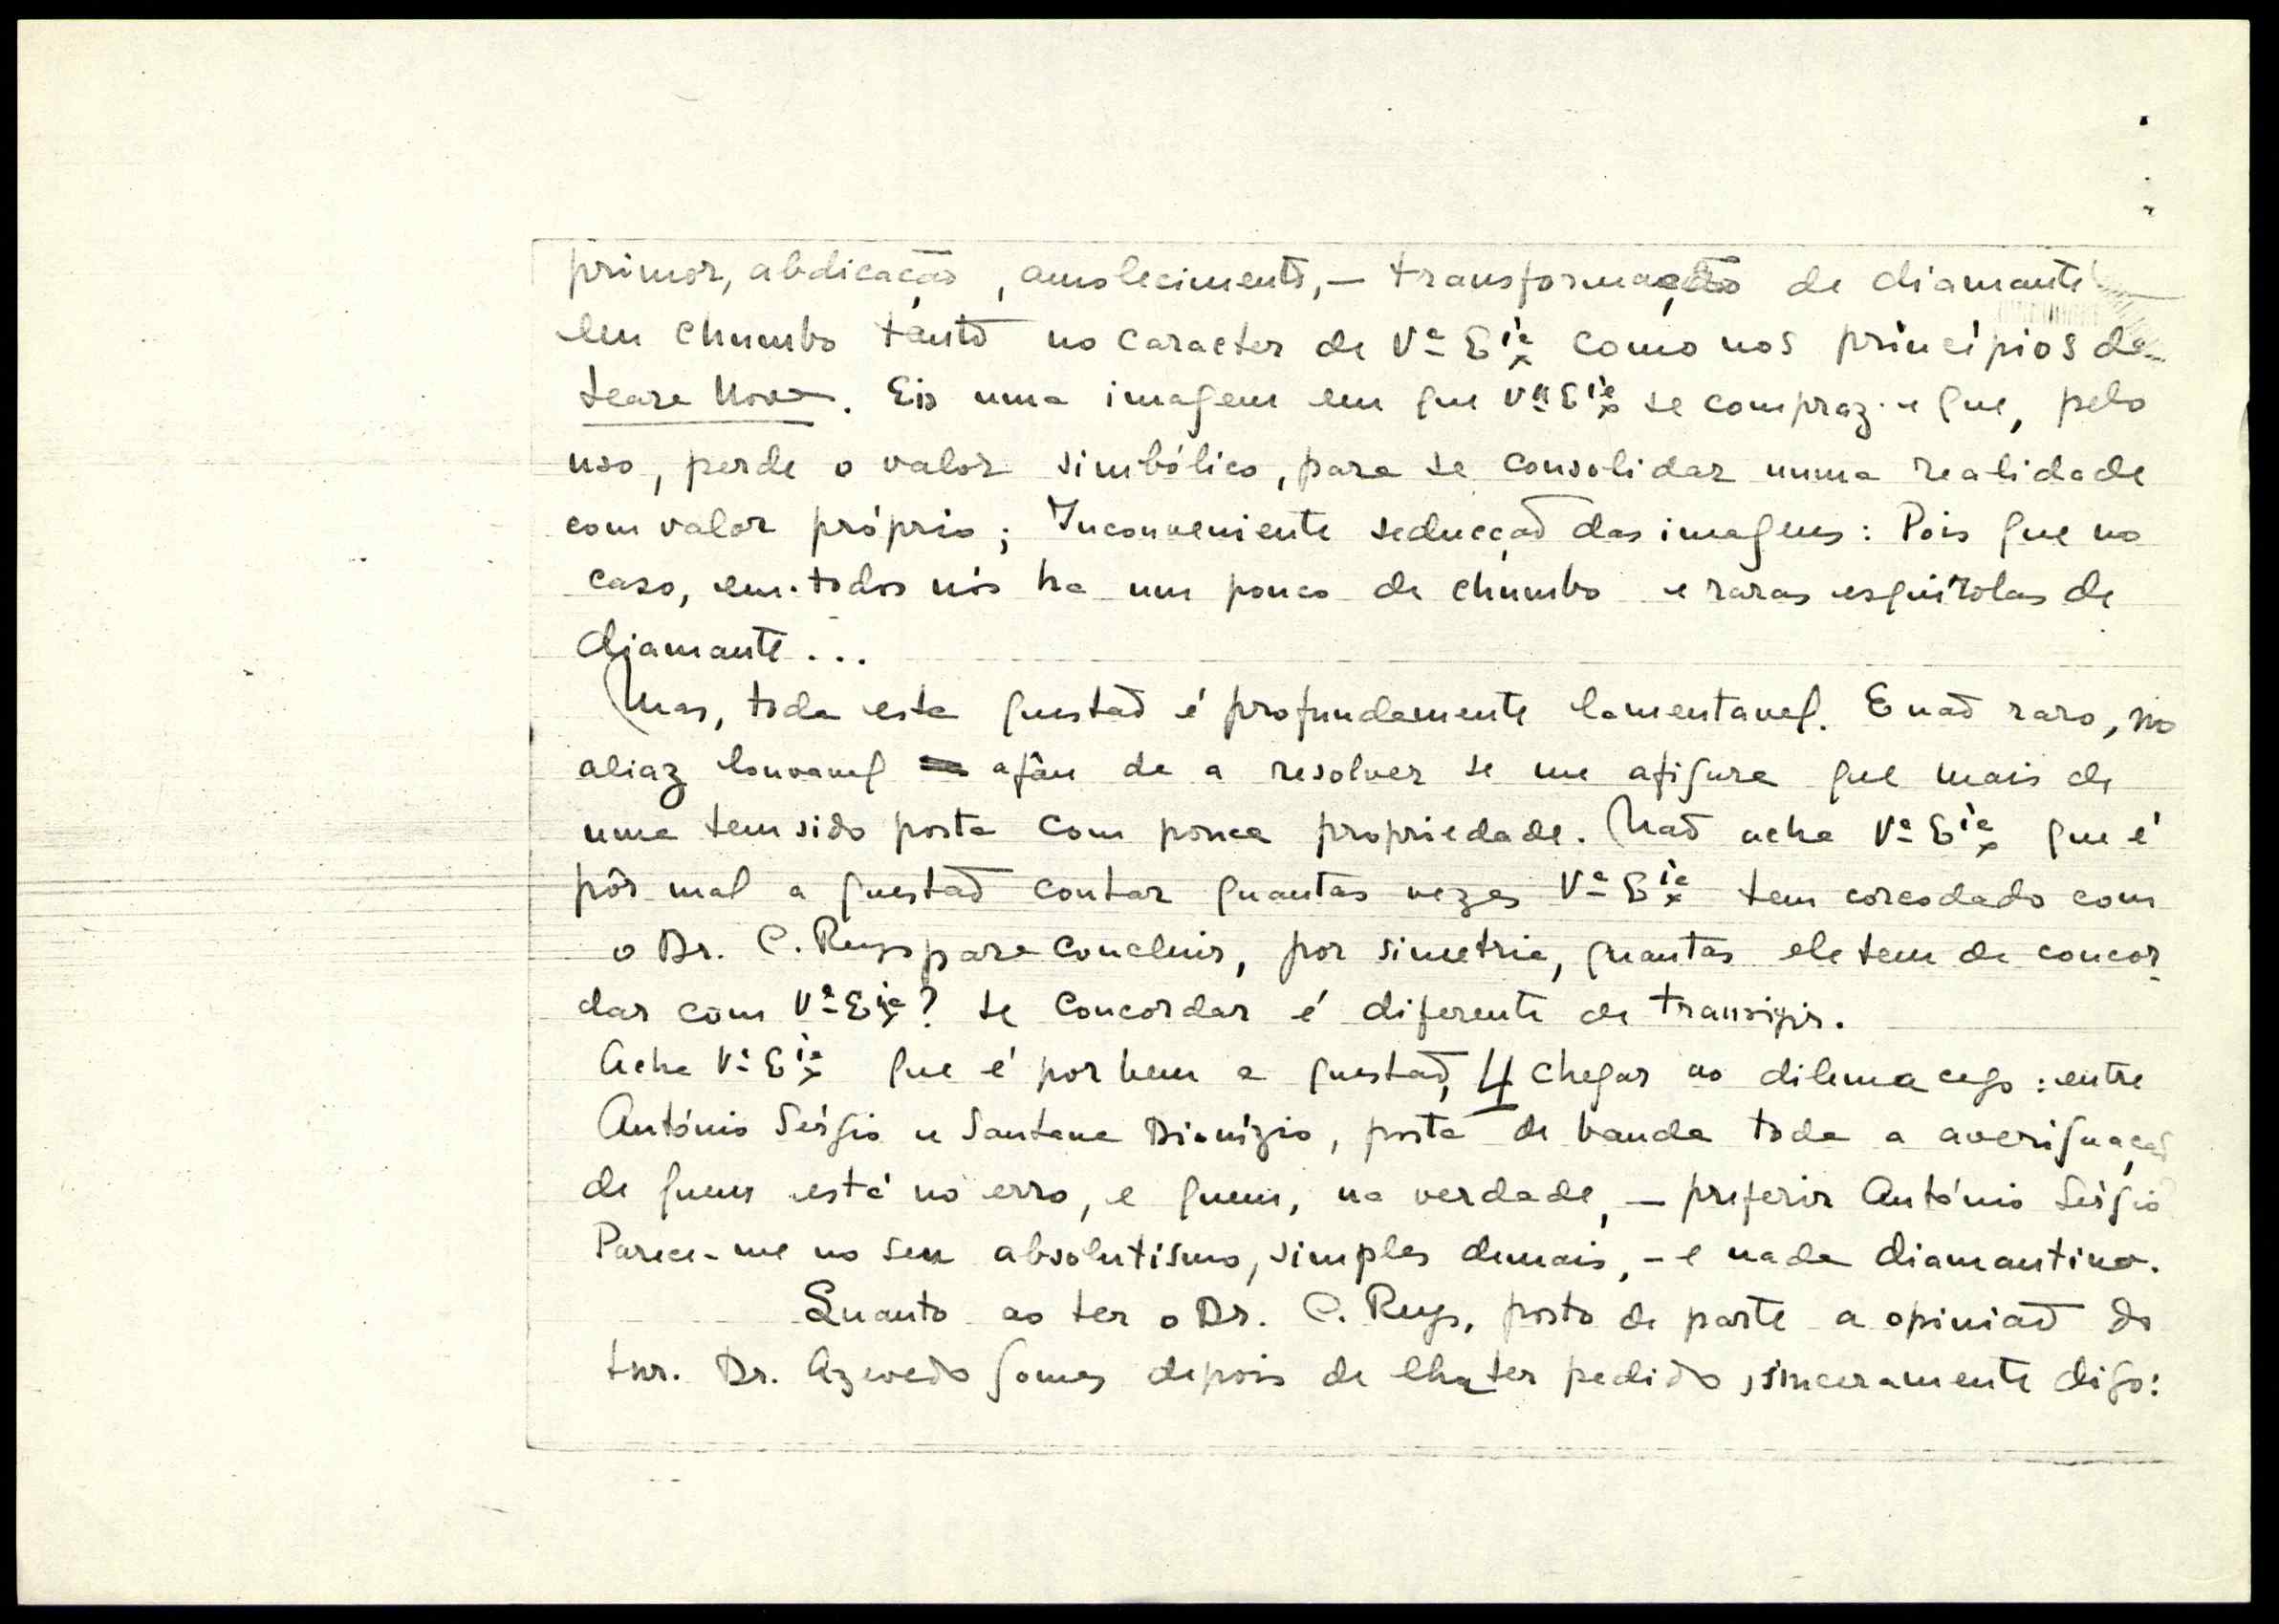 primor, abdicação, amolecimento, — transformação de diamante
em chumbo tanto no caracter de Vª Exᶦᵃ como nos princípios da
Seara Nova. Eis uma imagem em que Vª Exᶦᵃ se compraz e que, pelo
uso, perde o valor simbólico, para se consolidar numa realidade
com valor próprio; Inconveniente seducção das imagens: Pois que no
caso, em todos nós ha um pouco de chumbo e raras esquírolas de
diamante...
Mas, toda esta questão é profundamente lamentavel. E não raro, no
aliaz louvavel afân de a resolver se me afigura que mais de
uma tem sido posta com pouca propriedade. Não acha Vª Exᶦᵃ que é
pôr mal a questão contar quantas vezes Vª Exᶦᵃ tem corcodado com
o Dr. C. Reys para concluir, por simetria, quantas ele tem de concor-
dar com Vª Exᶦᵃ? Se concordar é diferente de transigir.
Acha Vª Exᶦᵃ que é por bem a questão, chegar ao dilema cego: entre
António Sérgio e Santana Dionízio, posta de banda toda a averiguação
de quem está no erro, e quem, na verdade, — preferir António Sérgio
Parece-me no seu absolutismo, simples demais, - e nada diamantino.
Quanto ao ter o Dr. C. Reys, posto de parte a opinião do
Snr. Dr. Azevedo Gomes depois de lha ter pedido, sinceramente digo: